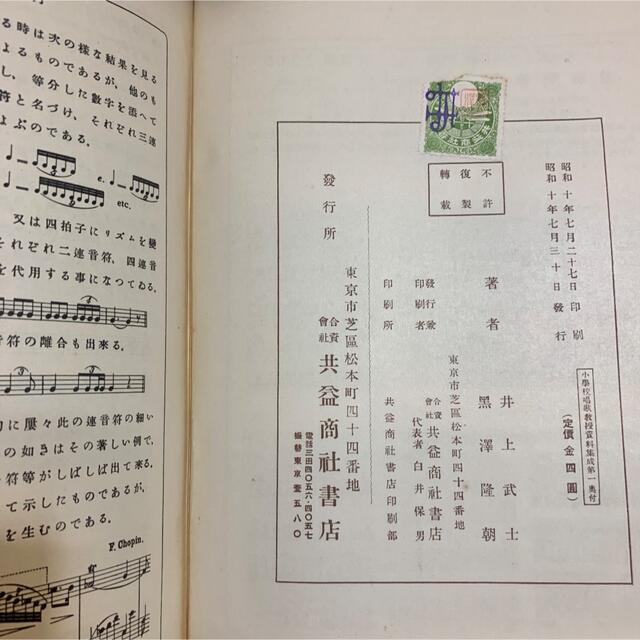 る時は次の様な結果を見る
よるものであるが、他のも
し、等分した數字を添へて
符と名づけ、それぞれ三連
よぶのである。
3
6
e.
3
6
etc.
又は四拍子にリズムを變
それぞれ二連音符、四連音
を代用する事になつてゐる。
4
音符の離合も出來る。
3
に屢々此の連音符の細い
の如きはその著しい例で、
符等がしばしば出て來る。
て示したものであるが、
を生むのである。
F. Chopin.
昭和十年七月二十七日印刷
昭和十年七月三十日發行
小學校唱歌敎授資料集成第一奥付
(定價金四圓)
不許
復製
轉載
著者
井上武士
黑澤隆朝
東京市芝區松本町四十四番地
發行兼
印刷者
合資
會社
共益商社書店
代表者 白井保男
印刷所
共益商社書店印刷部
發行所
東京市芝區松本町四十四番地
合資
會社
共益商社書店
電話三田四〇五六・四〇五七
振替東京壹五八〇